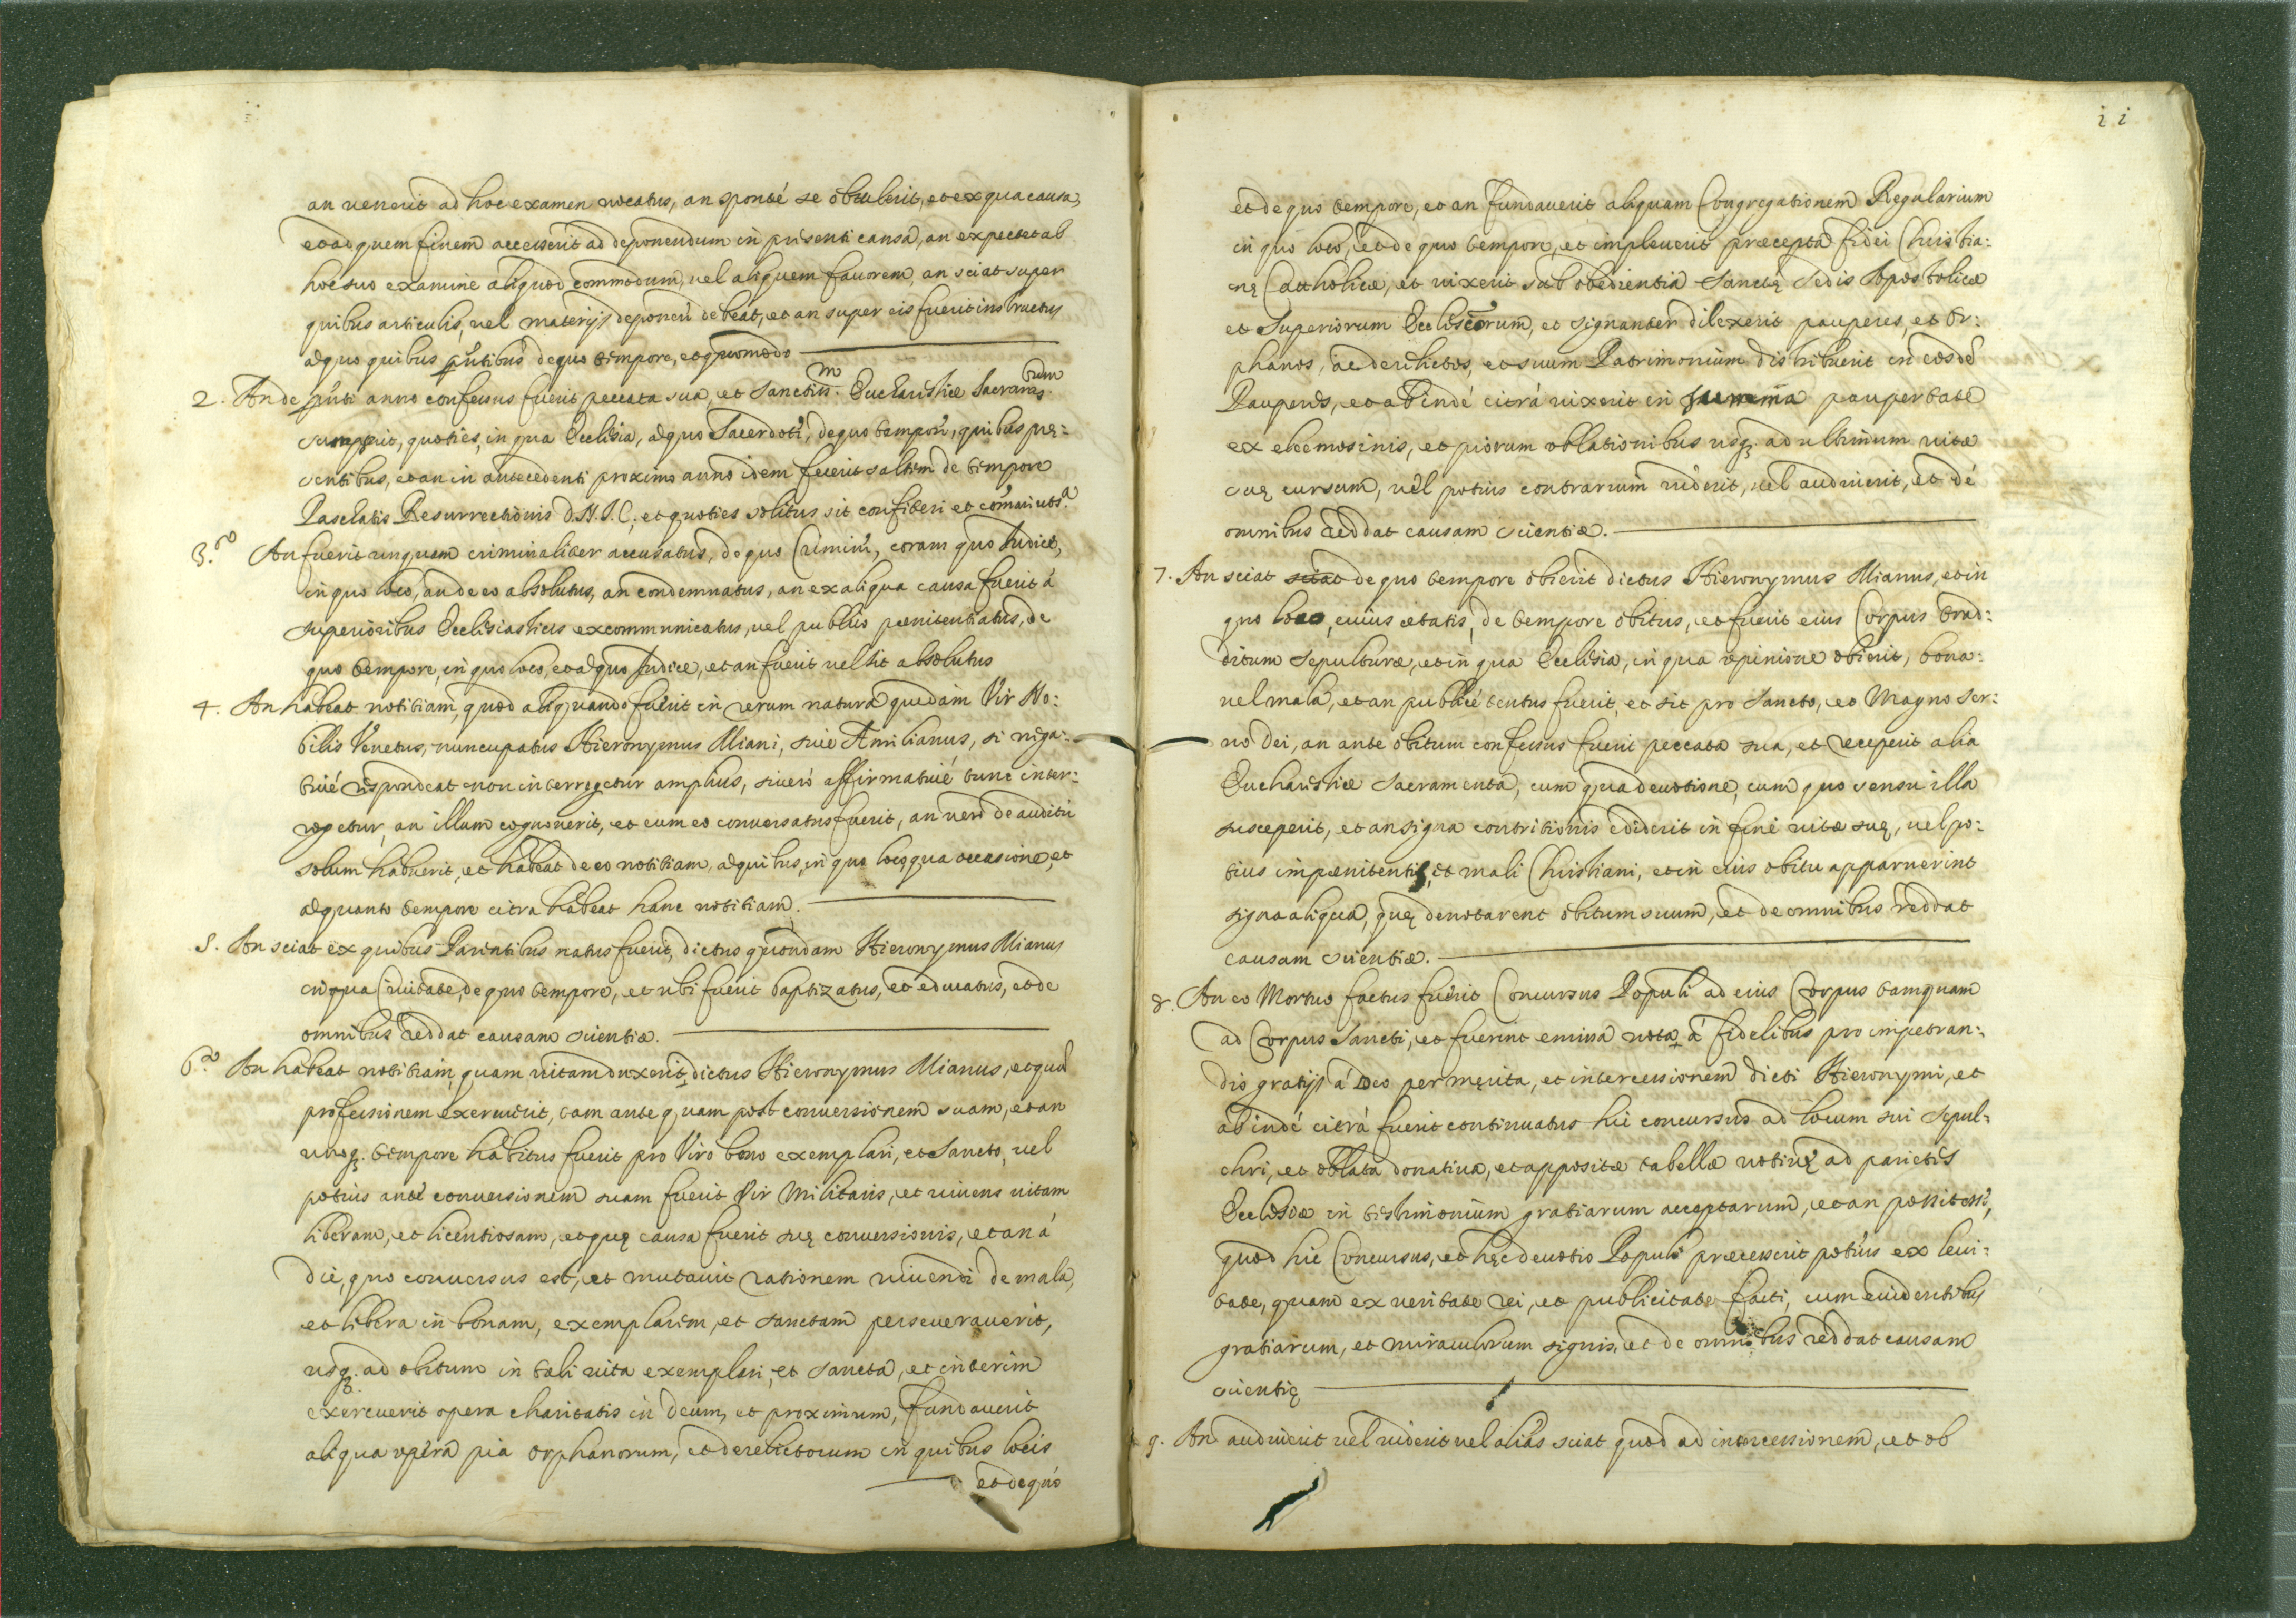 an venerit ad hoc examen vocatus, an sponté se obtulerit, et ex qua causa,
et ad quem finem accesserit ad deponendum in presenti causa, an expectet ab
hoc suo examine aliquod commodum, vel aliquem favorem, an sciat super
quibus articulis, vel materijs deponeri debeat, et an super eis fuerit instructus
a quo quibus pñtibus de quo tempore, et quomodo
2. An de pñti anno confessus fuerit peccata sua, et Sanctiss.m Eucharistiæ Sacram.tum
sumpserit, quoties, in qua Ecclesia, a quo Sacerdote, de quo tempore, quibus prę-
sentibus, et an in antecedenti proximo anno idem fecerit saltem de tempore
Paschatis Resurrectionis D.N.J.C. et quoties solitus sit confiteri et
3.o An fuerit unquam criminaliter accusatus, de quo Crimine, coram quo Iudice,
in quo loco, an de eo absolutus, an condemnatus, an ex aliqua causa fuerit á
superioribus Ecclesiasticis excommunicatus, vel publico pœnitentiatus, de
quo tempore, in quo loco, et a quo Iudice, et an fuerit vel sit absolutus
4. An habeat notitiam, quod aliquando fuerit in rerum natura quedam Vir No-
bilis Venetus, nuncupatus Hieronymus Miani, sive Æmilianus, si nega-
tivé respondeat non interrogetur amplius, si veró affirmativé tunc inter-
rogetur, an illum cognoverit, et cum eo conversatus fuerit, an vero de auditu
solum habuerit, et habeat de eo notitiam, a quibus, in quo loco, qua occasione, et
a quanto tempore citra habeat hanc notitiam.
5. An sciat ex quibus Parentibus natus fuerit, dictus quondam Hieronymus Mianus
in qua Civitate, de quo tempore, et ubi fuerit baptizatus, et educatus, et de
omnibus reddat causam scientiæ.
6.o An habeat notitiam, quam vitam duxerit dictus Hieronymus Mianus, et quã
professionem exercuerit, tam ante quam post conversionem suam, et an
unoq. tempore habitus fuerit pro Viro bono exemplari, et Sancto, vel
potius ante conversionem suam fuerit Vir Militaris, et vivens vitam
liberam, et licentiosam, et quę causa fuerit suę conversionis, et an á
die, quo conversus est, et mutavit rationem vivendi de mala,
et libera in bonam, exemplarem, et sanctam perseveraverit,
usq. ad obitum in tali vita exemplari, et sancta, et interim
exercuerit opera charitatis in Deum, et proximum, fundaverit
aliqua opera pia orphanorum, et derelictorum in quibus locis
et de quo
ii
et de quo tempore, et an fundaverit aliquam Congregationem Regularium
in quo loco, et de quo tempore, et impleverit præcepta fidei Christia-
nę Catholicæ, et vixerit sub obedientia Sanctę Sedis Apostolicæ
et Superiorum Eccliscorum, et signanter dilexerit pauperes, et Or-
phanos, ac derelictos, et suum Patrimonium distribuerit in eosdẽ
Pauperes, et ab indé citrá vixerit in summa paupertate
ex eleemosinis, et piorum oblationibus usq. ad ultimum vitæ
suę cursum, vel potius contrarium viderit, vel audiverit, et dé
omnibus reddat causam scientiæ.
7. An sciat sciat de quo tempore obierit dictus Hieronymus Mianus, et in
quo loco, cuius ætatis, de tempore obitus, et fuerit eius Corpus trad-
ditum sepulturæ, et in qua Ecclesia, in qua opinione obierit, bona-
vel mala, et an publicé tentus fuerit, et sit pro Sancto, et Magno Ser-
vo Dei, an ante obitum confessus fuerit peccata sua, et receperit alia
Eucharistiæ sacramenta, cum qua devotione, cum quo sensu illa
susceperit, et an signa contritionis ediderit in fine vitæ suę, vel po-
tius impœnitentis, et mali Christiani, et in eius obitu apparuerint
signa aliqua, quę denotarent obitum suum, et de omnibus reddat
causam scientiæ.
8. An eo Mortuo factus fuerit Concursus Populi ad eius Corpus tamquam
ad Corpus Sancti, et fuerint emissa vota á fidelibus pro impetran-
dis gratijs á Deo per merita, et intercessionem dicti Hieronymi, et
ab indé citrá fuerit continuatus hic concursus ad locum sui Sepul-
chri, et oblata donativa, et appositæ tabellæ votivę ad parietes
Ecclesiæ in testimonium gratiarum acceptarum, et an
quod hic Concursus, et hęc devotio Populi præcesserit potius ex levi-
tate, quam ex veritate rei, et publicitate facti, cum evidentibus
gratiarum, et miraculorum signis, et de omnibus reddat causam
scientię
9. An audiverit vel viderit vel alias sciat quod ad intercessionem, et ob